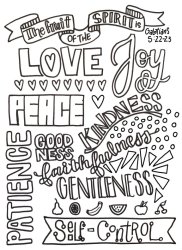 The Fruit
OF THE
SPIRIT is
Galatians
5:22-23
LOVE
Joy
&
PEACE
KINDNESS
PATIENCE
GOOD
NESS
faithfulness
GENTLENESS
Self-Control